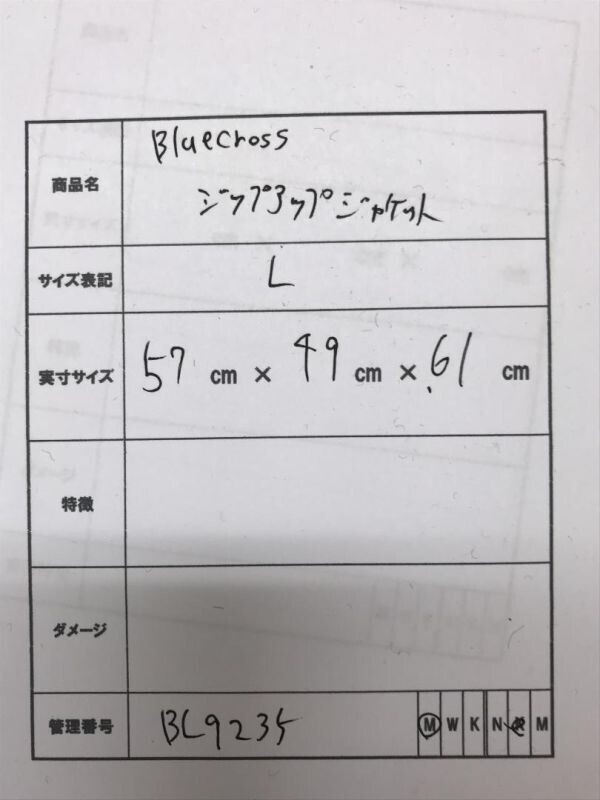 商品名
Bluecross
ジップアップジャケット
サイズ表記
L
実寸サイズ
57 cm × 49 cm × 61 cm
特徴
ダメージ
管理番号
BC9235
M W K N M